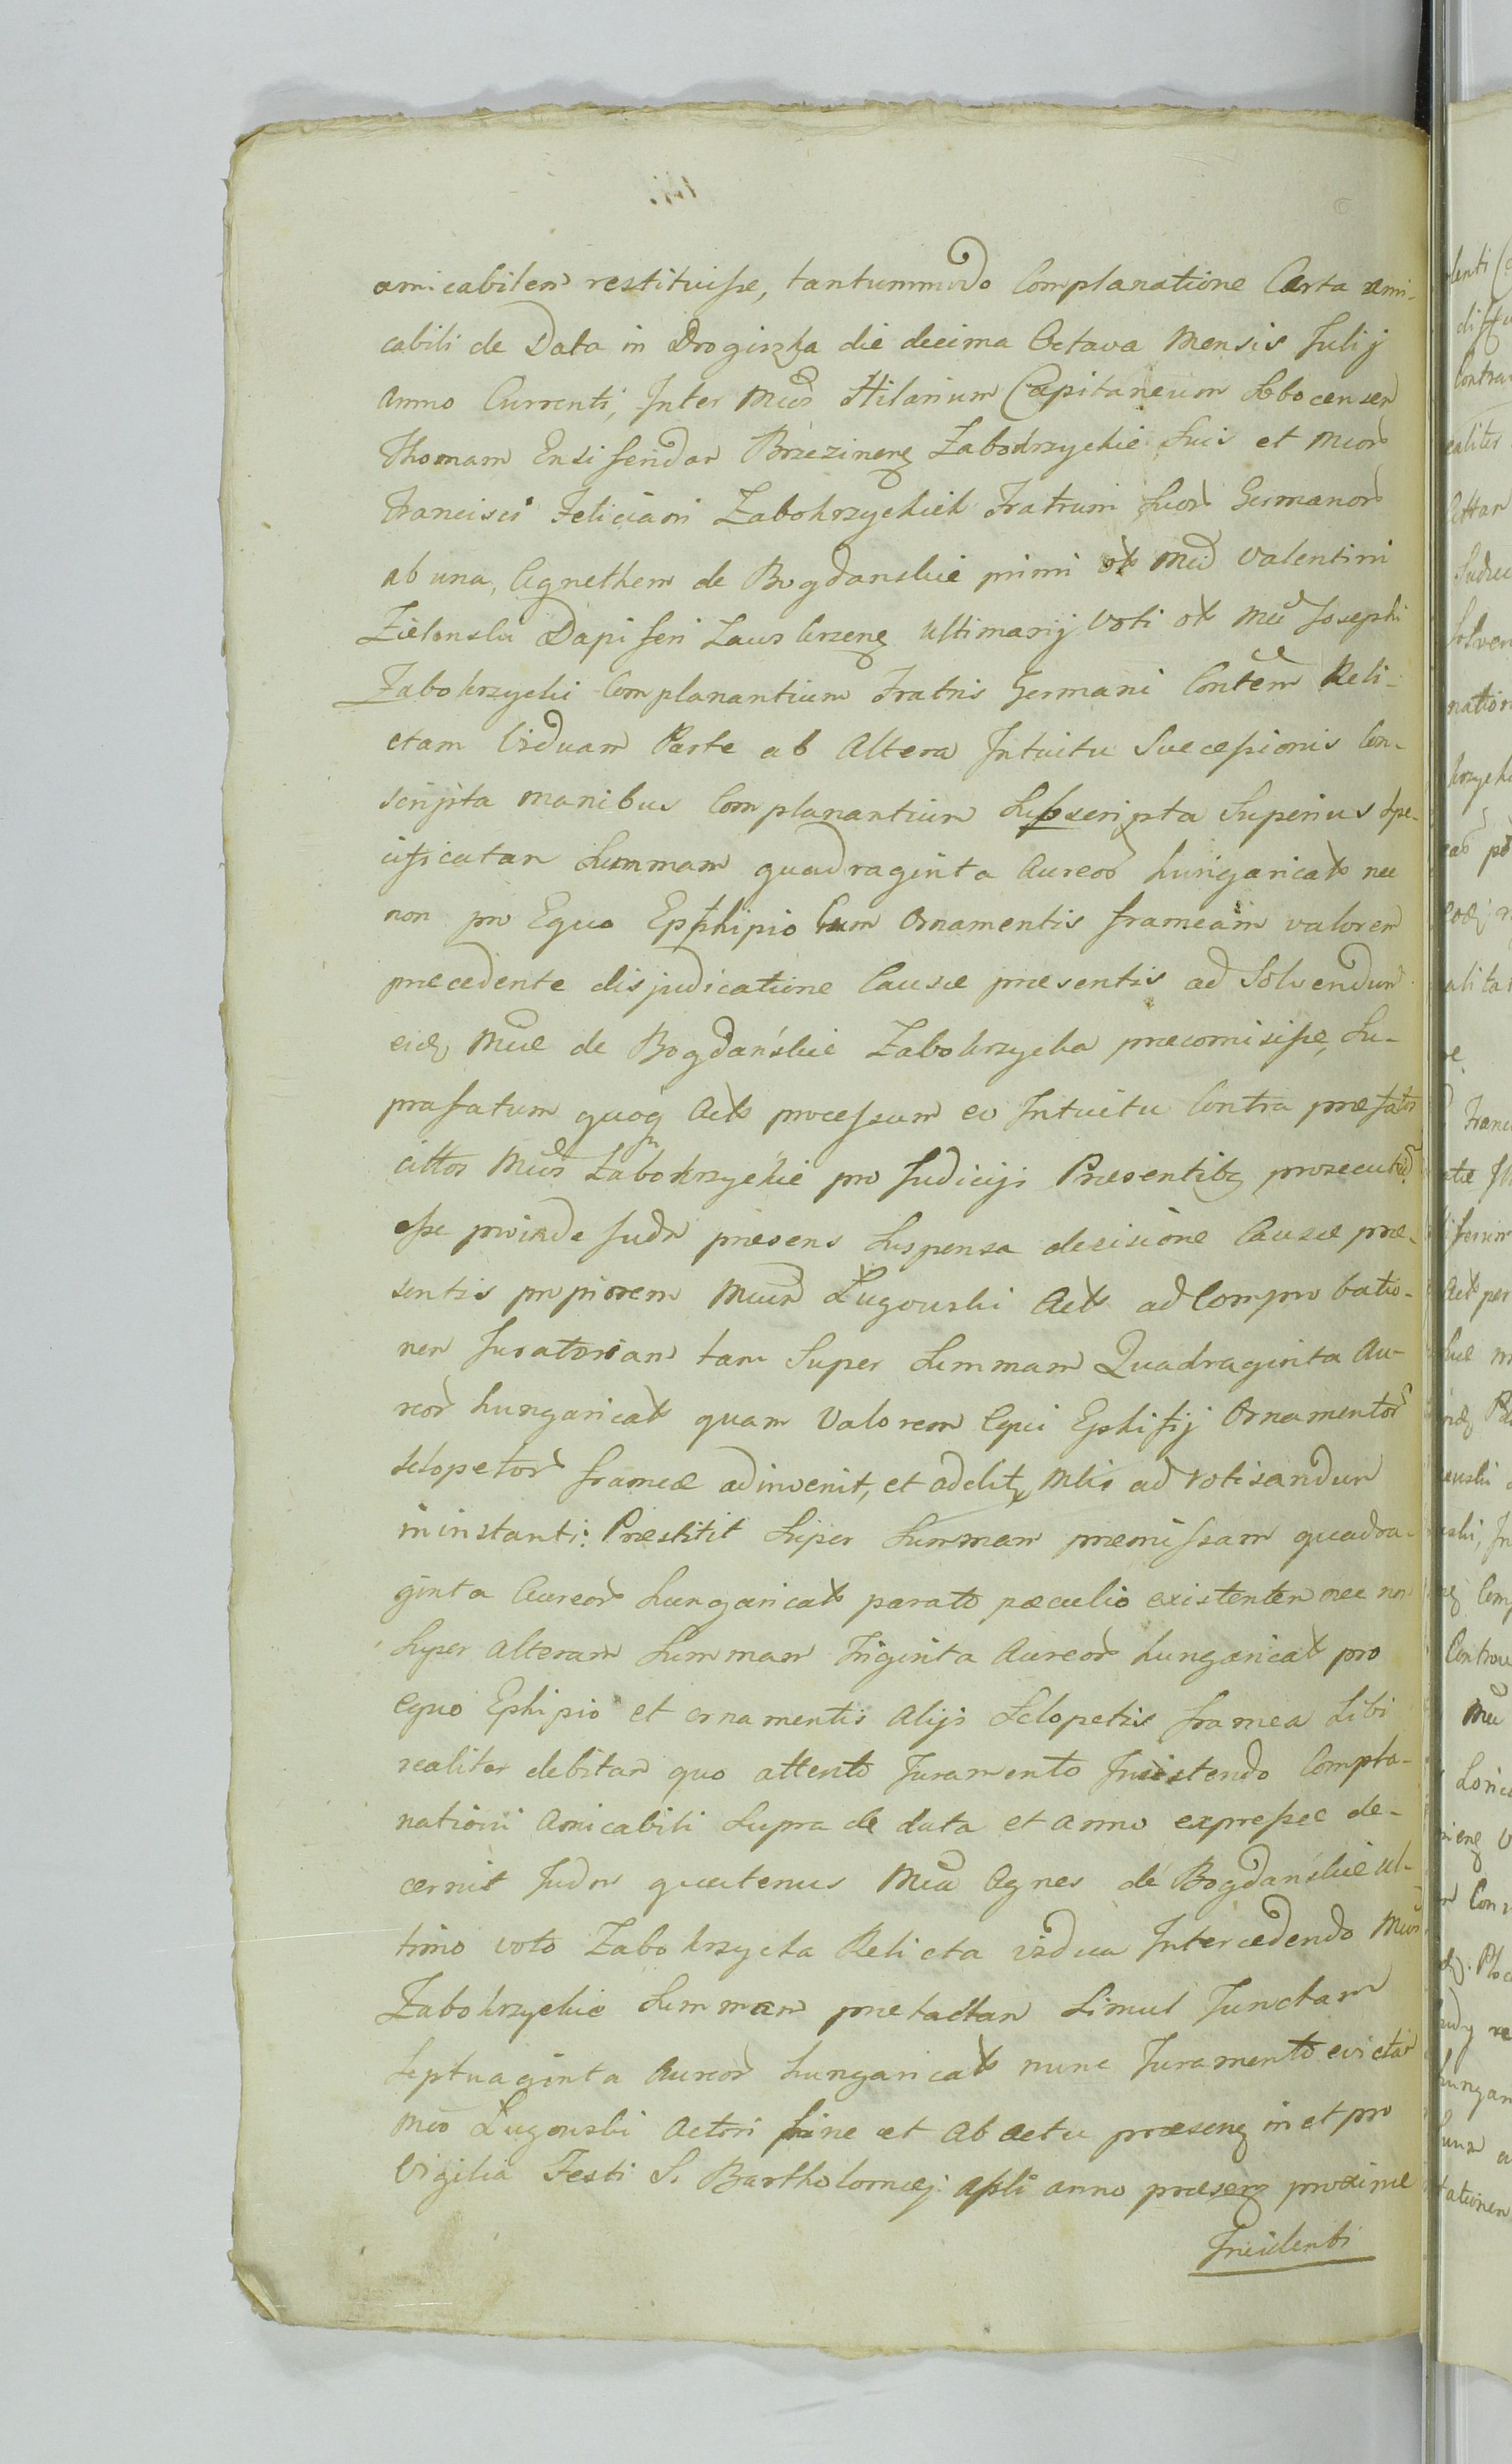 amicabilem restituisse, tantummodo Complanatione Certa ami-
cabili de Data in Drogiszka die decima Octava Mensis Julij
Anno Currenti, Inter Mcos Hilarium Capitaneum Sebocensem
Thomam Ensiferum Brzezinens Zabokrzyckie suis et Mcor
Francisci Feliciani Zabokrzyckich Fratrum suor Germanor
ab una, Agnethem de Bogdanskie primi ol Mci Valentini
Zielonski Dapiferi Zawskrzens ultimarij Voti ol Mci Josephi
Zabokrzycki Complanantium Fratris Germani Conthlem Reli-
ctam Viduam Parte ab Altera Intuitu Successionis Con-
scripta manibus Complanantium Subscripta Superius spe-
cificatam Summam quadraginta Aureor hungarical nec
non pro Equo Epphipio Cum Ornamentis frameam valorem
precedente disjudicatione Causæ præsentis ad Solvendum
eid Mcæ de Bogdańskie Zabokrzycka præcomisisse, Su-
prafatum quoq Act processum eo Intuitu Contra præfatos
cittos Mcos Zabokrzyckie pro Judicijs Præsentib prosecutum
esse proinde Judm præsens Suspensa decisione Causæ præ-
sentis propiorem Mcum Ługowski Act ad Comprobatio-
nem Juratoriam tam Super Summam Quadraginta Au-
reor hungarical quam Valorem Equi Ephipij Ornamentor
sclopetor frameæ adinvenit, et adcit Mlis ad rotisandum
in instanti: Præstitit Super Summam premissam quadra-
ginta Aureor hungarical parato pæculio existentem nec non
Super Alteram Summam Triginta Aureor hungarical pro
equo Ephipio et ornamentis Alijs Sclopetis framea Sibi
realiter debitam quo attento Juramento Insistendo Compla-
nationi Amicabili Supra de data et anno expressæ de-
cernit Judm quatenus Mca Agnes de Bogdanskie ul-
timo voto Zabokrzycka Relicta vidua Intercedendo Mcos
Zabokrzyckie Summam prætactam Simul Junctam
Septuaginta Aureor hungarical nunc Juramento evictam
Mco Ługowski Actori hinc et Ab actu præsens in et pro
Vigilia Festi S. Bartholomæj Apli anno præsens proxime
Incidenti